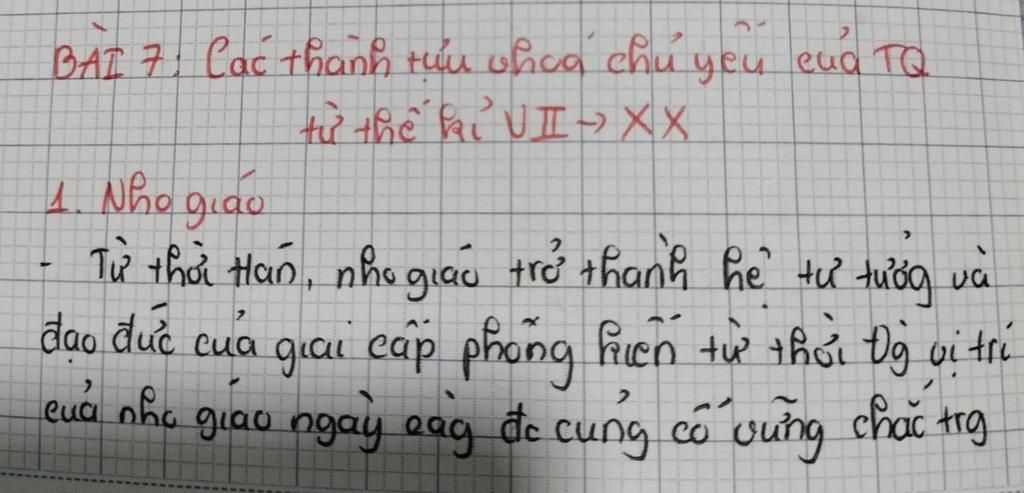 BÀI 7: Các thành tựu vhoá chủ yếu của TQ
từ thế kỉ VII → XX
1. Nho giáo
- Từ thời Hán, nho giáo trở thành hệ tư tưởng và
đạo đức của giai cấp phong kiến từ thời Đg vị trí
của nho giáo ngày càg đc củng cố vững chắc trg